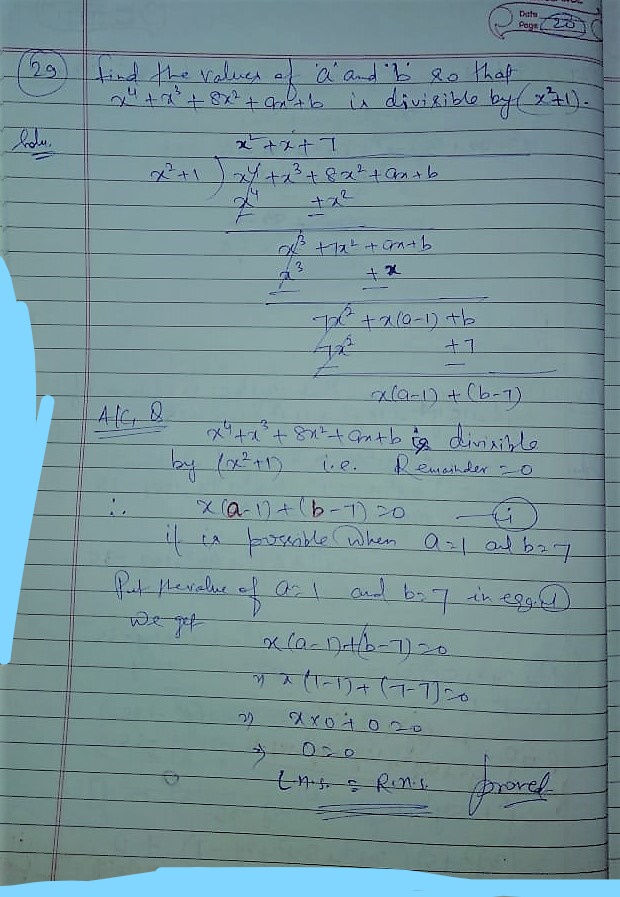 Date
Page 20
29 find the values of 'a' and 'b' so that
x⁴ + x³ + 8x² + ax + b is divisible by (x²+1).
Solu.
x² + x + 7
x²+1 ) x⁴ + x³ + 8x² + ax + b
x⁴ + x²
– –
x³ + 7x² + ax + b
x³ + x
– –
7x² + x(a-1) + b
7x² + 7
– –
x(a-1) + (b-7)
A/C, Q
x⁴ + x³ + 8x² + ax + b is divisible
by (x²+1) i.e. Remainder = 0
∴ x(a-1) + (b-7) = 0 — (i)
it is possible when a=1 and b=7
Put the value of a=1 and b=7 in eqn. (i)
We get
x(a-1)+(b-7)=0
⇒ x(1-1)+(7-7)=0
⇒ x×0+0=0
⇒ 0=0
L.H.S. = R.H.S. proved